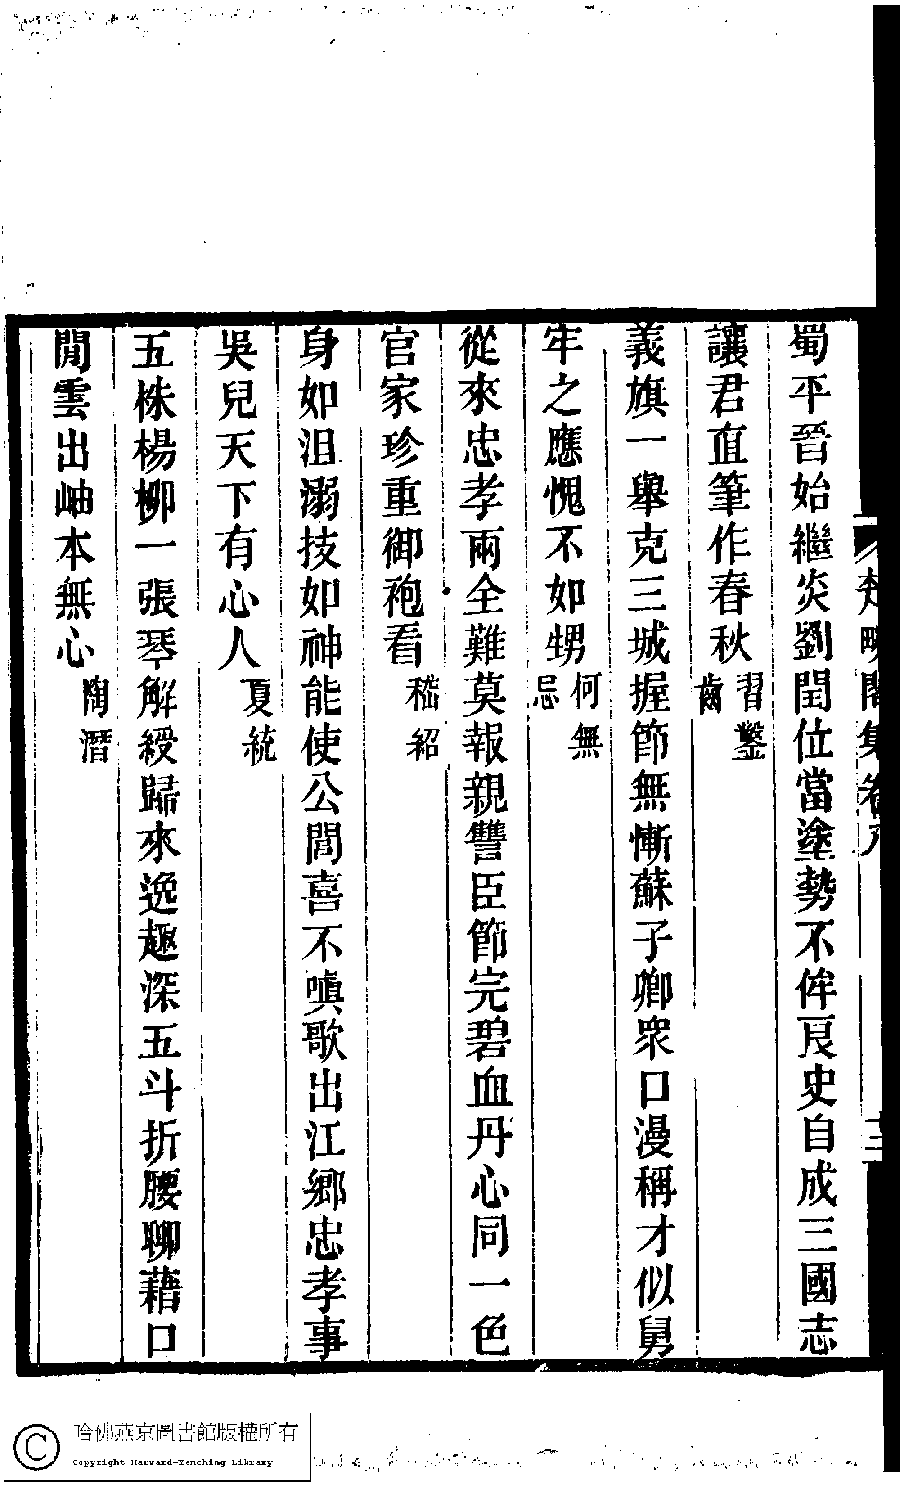 蜀平晉始繼炎劉閏位當塗勢不侔良史自成三國志
讓君直筆作春秋習鑿齒
義旗一舉克三城握節無慚蘇子卿衆口漫稱才似舅
牢之應愧不如甥何無忌
從來忠孝兩全難莫報親讐臣節完碧血丹心同一色
官家珍重御袍看嵇紹
身如沮溺技如神能使公閭喜不嗔歌出江鄉忠孝事
吳兒天下有心人夏統
五株楊柳一張琴解綬歸來逸趣深五斗折腰聊藉口
閒雲出岫本無心陶潛
閣集卷八
十二
哈佛燕京圖書館版權所有
Copyright Harvard-Yenching Library